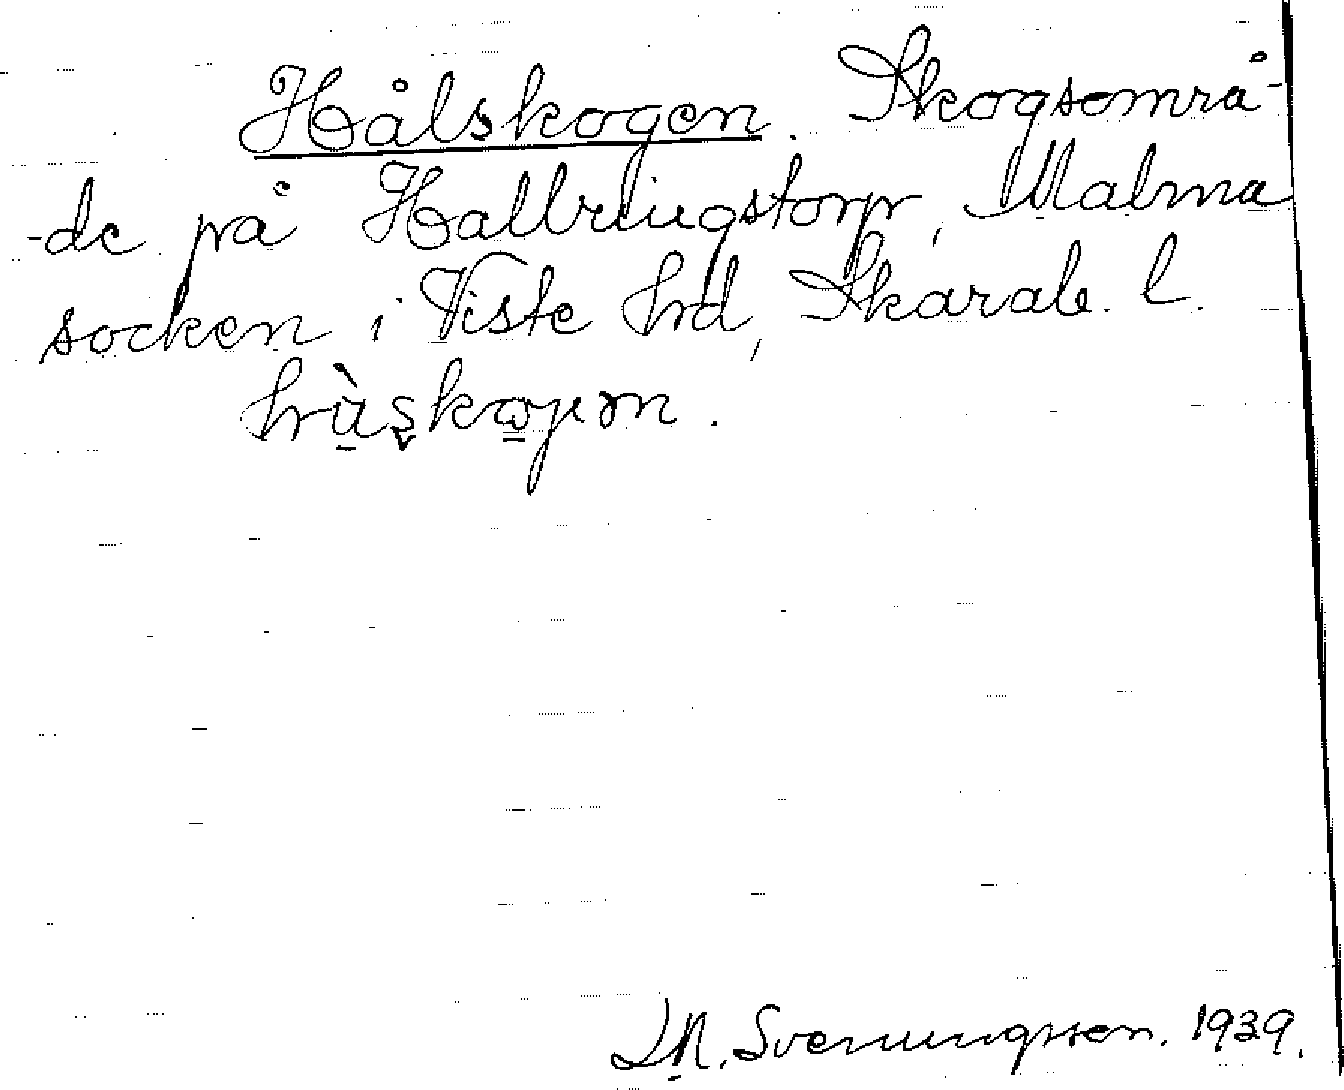 Hålskogen. Skogsområ-
-de på Hallrlingstorp, Malma
socken i Viste hrd, Skarab. l.
Svenungsson. 1939.